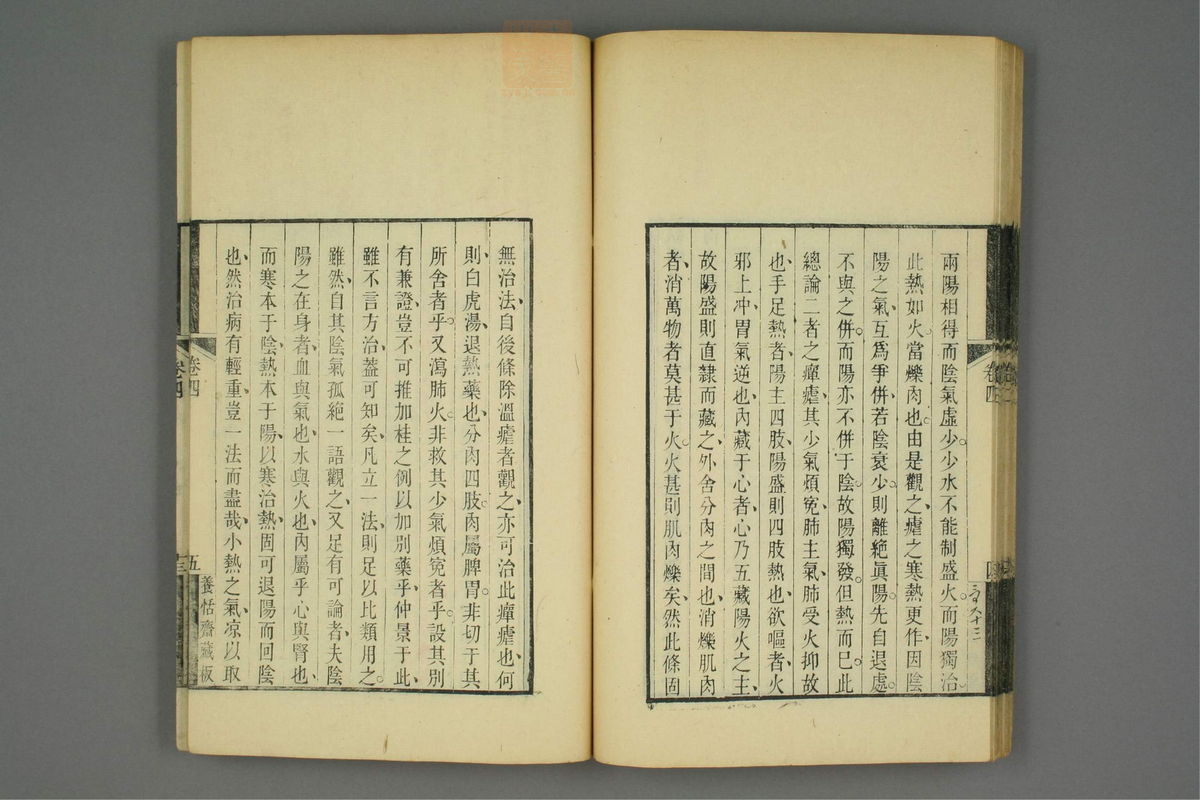 兩陽相得而陰氣虛少少水不能制盛火而陽獨治
此熱如火當爍肉也由是觀之瘧之寒熱更作因陰
陽之氣互爲爭併若陰衰少則離絶眞陽先自退處
不與之併而陽亦不併于陰故陽獨發但熱而已此
總論二者之癉瘧其少氣煩寃肺主氣肺受火抑故
也手足熱者陽主四肢陽盛則四肢熱也欲嘔者火
邪上冲胃氣逆也內藏于心者心乃五藏陽火之主
故陽盛則直隸而藏之外舍分肉之間也消爍肌肉
者消萬物者莫甚于火火甚則肌肉爍矣然此條固
無治法自後條除溫瘧者觀之亦可治此癉瘧也何
則白虎湯退熱藥也分肉四肢肉屬脾胃非切于其
所舍者乎又瀉肺火非救其少氣煩寃者乎設其別
有兼證豈不可推加桂之例以加別藥乎仲景于此
雖不言方治蓋可知矣凡立一法則足以比類用之
雖然自其陰氣孤絕一語觀之又足有可論者夫陰
陽之在身者血與氣也水與火也內屬乎心與腎也
而寒本于陰熱本于陽以寒治熱固可退陽而回陰
也然治病有輕重豈一法而盡哉小熱之氣凉以取
卷四
五
養恬齋藏板